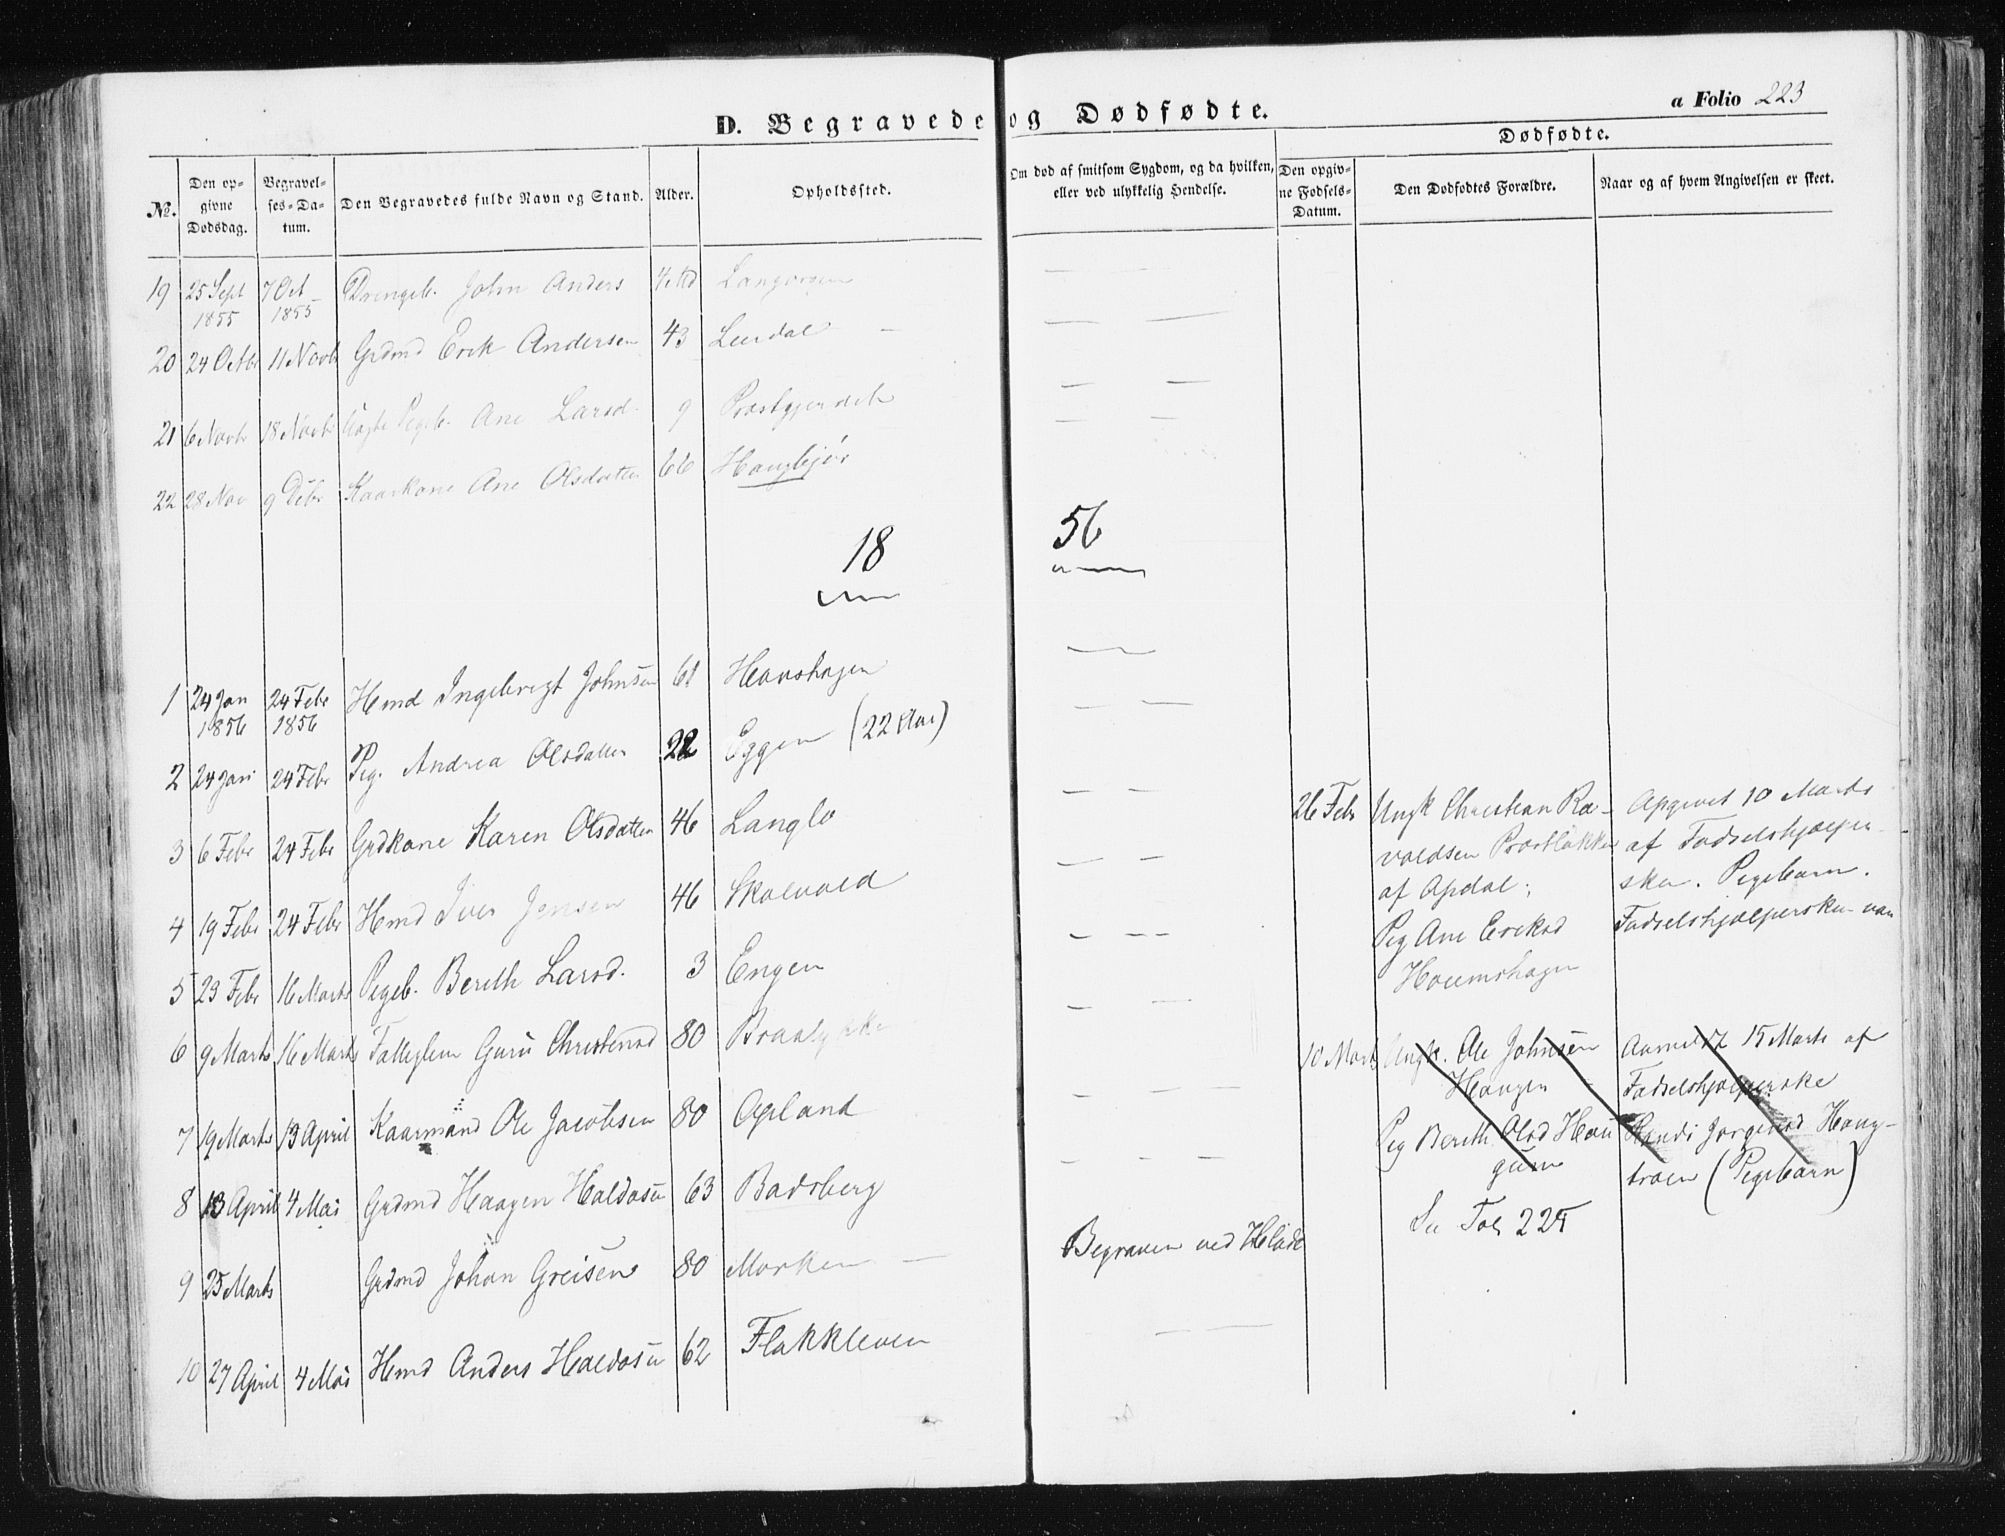 D. Begravede og Dødfødte.
a Folio 223
No.
Den opgivne Dødsdag.
Begravelses-Datum.
Den Begravedes fulde Navn og Stand.
Alder.
Opholdssted.
Om død af smitsom Sygdom, og da hvilken, eller ved ulykkelig Hendelse.
Dødfødte.
Den opgivne Fødsels-Datum.
Den Dødfødtes Forældre.
Naar og af hvem Angivelsen er skeet.
19 25 Sept 1855 7 Oct 1855 Drengeb. John Anders
20 24 Octbr 11 Novbr Grdmd Erik Andersen 43
21 6 Novbr 18 Novbr Pigeb. Ane Larsd. 9
22 28 Nov 9 Debr Kaarkone Ane Olsdatter 66 Haugbjør
18 56
1 24 Jan 1856 24 Febr 1856 Hmd Ingebrigt Johnsen 61 Hevshagen
2 24 Jan 24 Febr Pig. Andrea Olsdatter 22 Eggen (22 Aar)
3 6 Febr 24 Febr Grdkone Karen Olsdatter 46 Langlo
4 19 Febr 24 Febr Hmd Iver Jensen 46 Skolvold
5 23 Febr 16 Marts Pigeb. Bereth Larsd. 3 Engen
6 9 Marts 16 Marts Guru Christensd 80
7 19 Marts 13 April Kaarmand Ole Jacobsen 80 Opland
8 13 April 4 Mai Grdmd Haagen Haldosen 63 Badsberg
9 25 Marts Grdmd Johan Greisen 80 Morken Begraven ved
10 27 April 4 Mai Hmd Anders Haldosen 62 Flakkleven
26 Febr Ungk Christian Ra-
voldsen
af Opdal;
Pig Ane Ericksd
Houmshagen
Opgivet 10 Marts
af Fødselshjælper-
ske. Pigebarn.
Fødselshjælperske var
10 Marts Ungk. Ole Johnsen
Haugen
Pig Bereth Olsd Hou
gum
Anmeldt 15 Marts af
Fødselshjælperske
Randi Jorgensd Haug-
troen (Pigebarn)
Se Fol 225